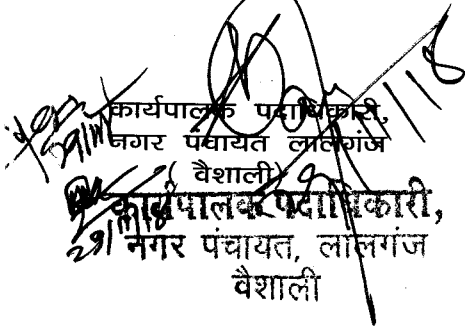 कार्यपालक पदाधिकारी,
नगर पंचायत लालगंज
( वैशाली)
कार्यपालक पदाधिकारी,
नगर पंचायत, लालगंज
वैशाली